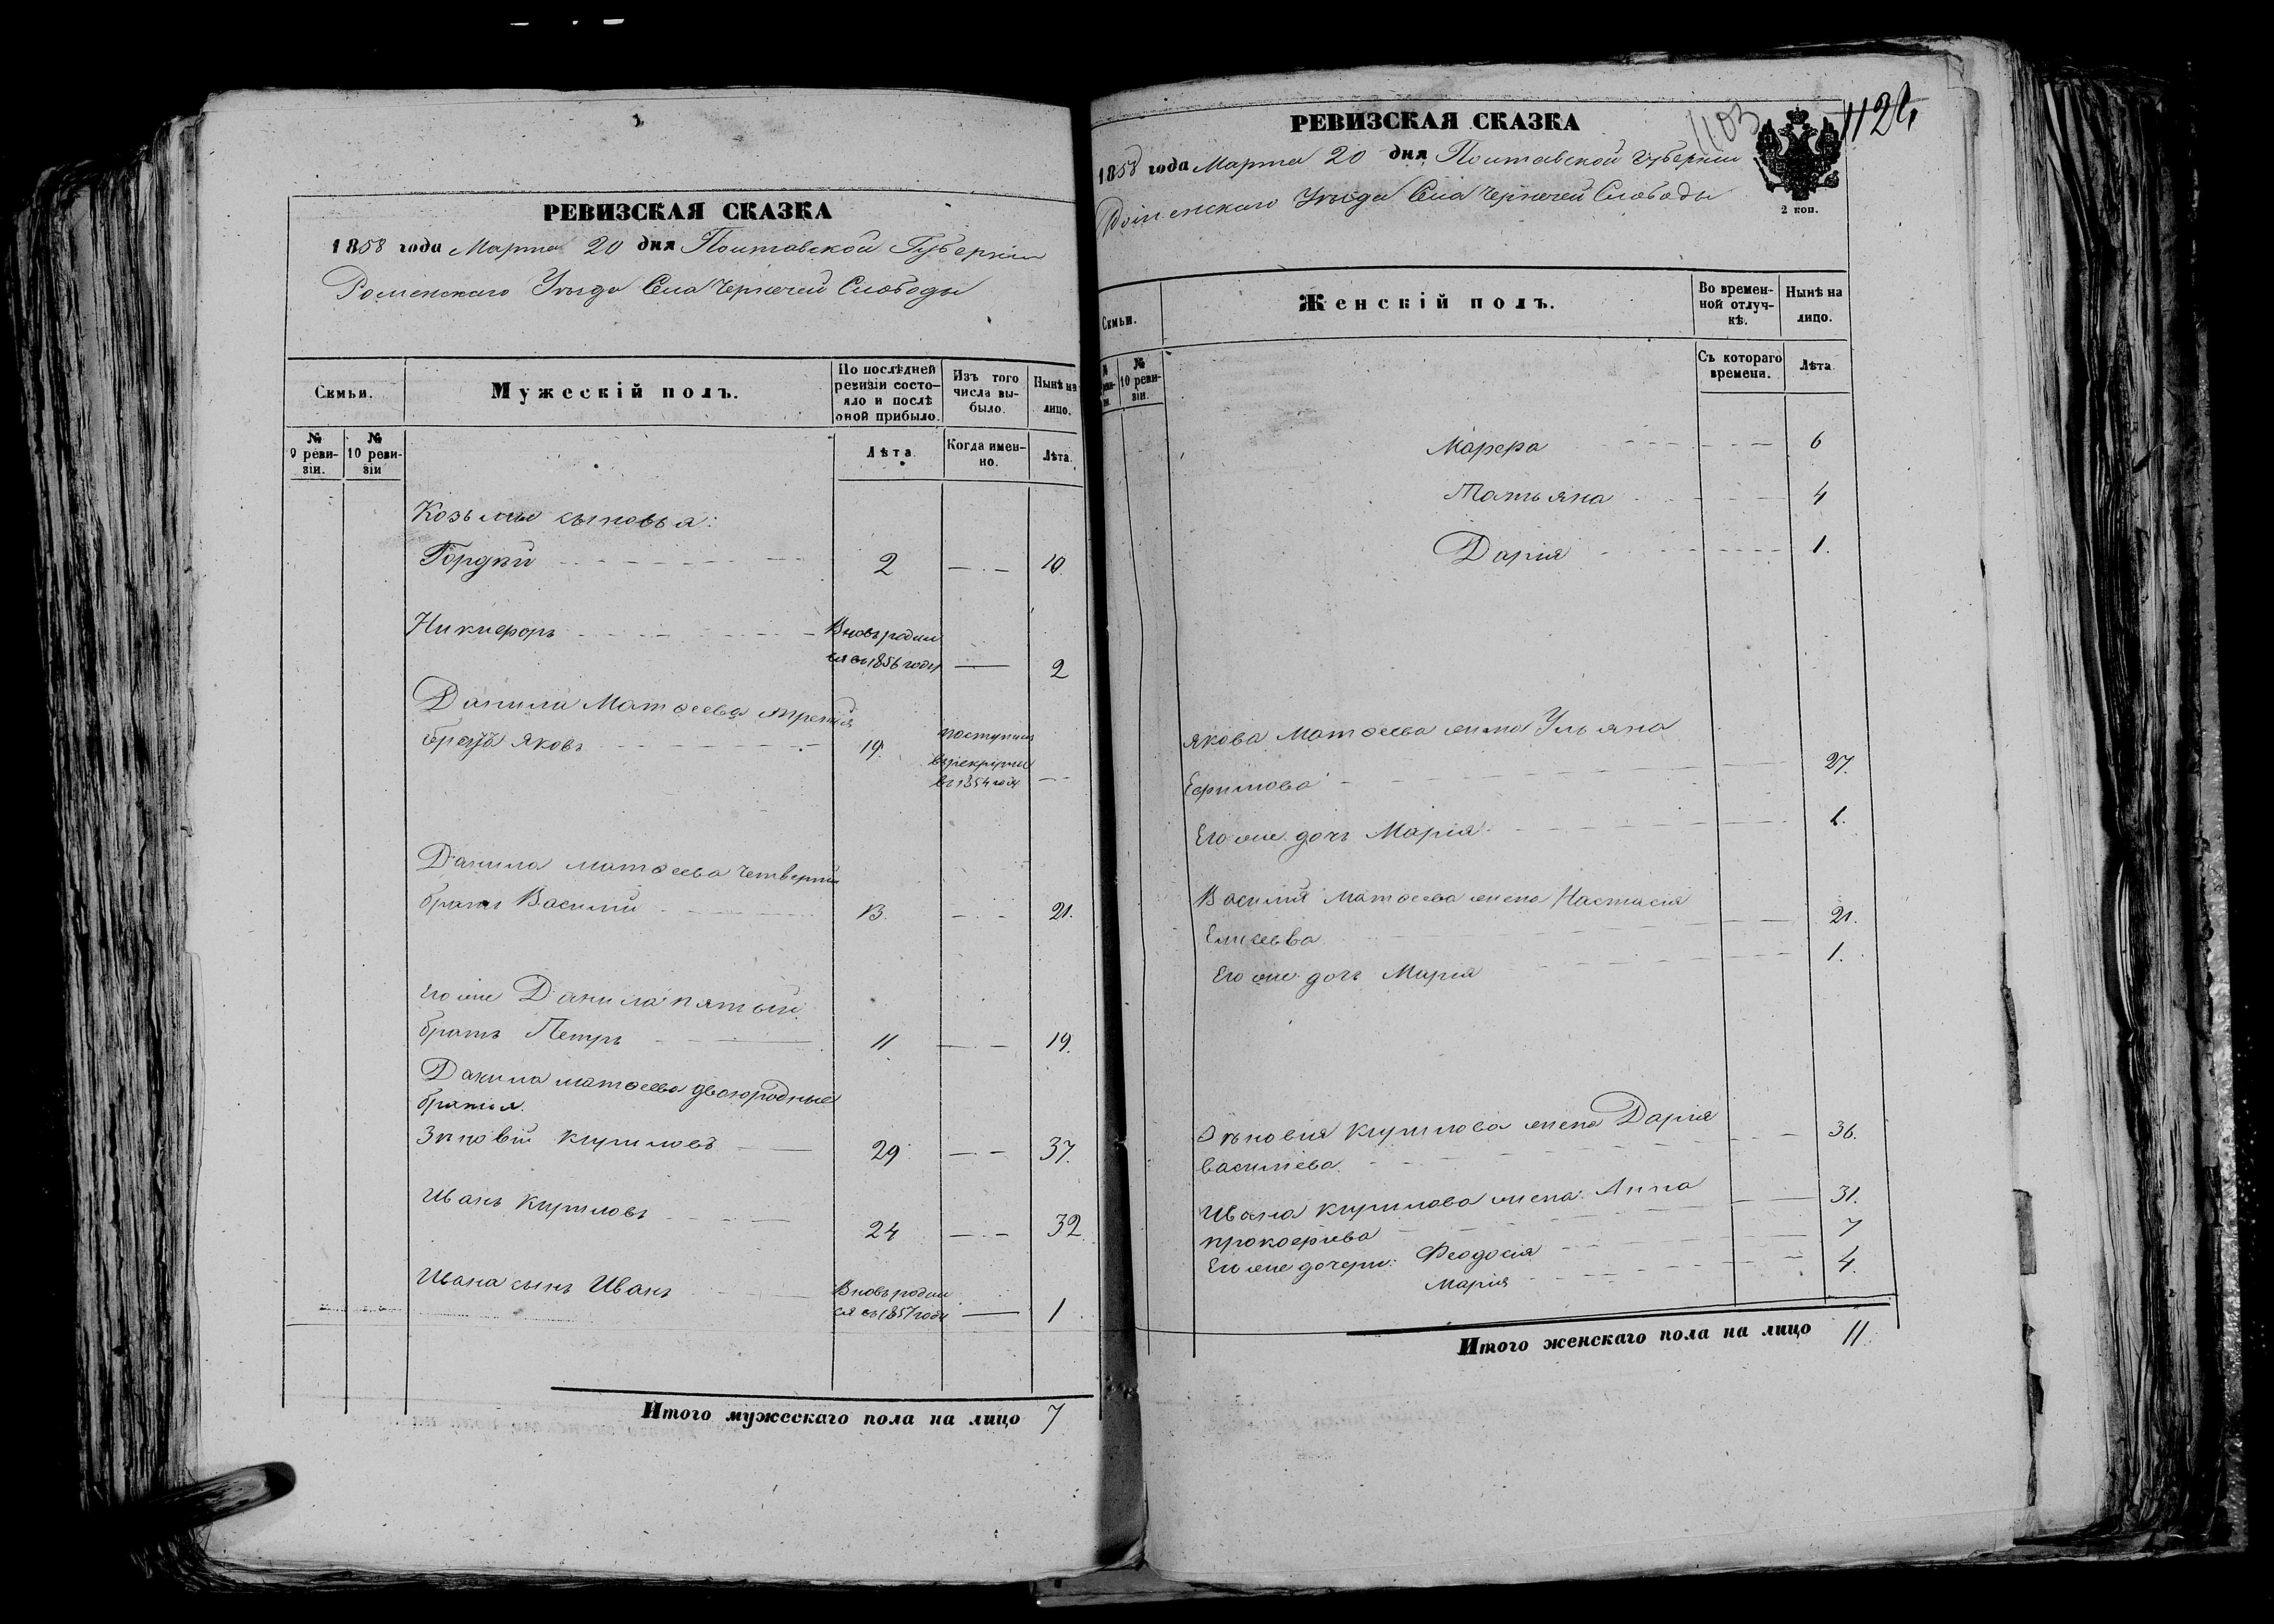 РЕВИЗСКАЯ СКАЗКА
1858 года Марта 20 дня Полтавской Губерніи
Роменскаго Уѣзда Села Чернечей Слободы
Семьи.
Мужескій полъ.
По послѣдней ревизіи состояло и послѣ оной прибыло.
Изъ того числа выбыло.
Нынѣ на лицо.
№ 9 ревизіи.
№ 10 ревизіи
Лѣта
Когда именно.
Лѣта.
Козьмы сыновья:
Гордѣй 2 10.
Никифоръ Вновь родил
ся въ 1856 году 2
Данила Матѳеева третій
братъ Яковъ 19. поступилъ
въ рекруты
въ 1854 году
Данила Матѳеева четвертый
братъ Василій 13. 21.
Его же Данила пятый
братъ Петръ 11 19.
Данила Матѳеева двоюродные
братья.
Зѣновій Кириловъ 29 37.
Иванъ Кириловъ 24 32.
Ивана сынъ Иванъ Вновь родил
ся въ 1857 году 1
Итого мужескаго пола на лицо 7
1103
1124
РЕВИЗСКАЯ СКАЗКА
1858 года Марта 20 дня Полтавской Губерніи
Роменскаго Уѣзда Села Чернечей Слободы
2 коп.
Семьи.
Женскій полъ.
Во временной отлучкѣ.
Нынѣ на лицо.
№ 10 ревизіи.
Съ котораго времени.
Лѣта.
Марѳа 6
Татьяна 4
Дарія 1.
Якова Матѳеева жена Ульяна
Ефимова 27.
Его же дочь Марія 1.
Василія Матѳеева жена Настасія
Елисеева 21.
Его же дочь Марія 1.
Зѣновія Кирилова жена Дарія
Васильева 36.
Ивана Кирилова жена Анна
Прокофіева 31.
Его же дочери: Феодосія 7
Марія 4.
Итого женскаго пола на лицо 11.